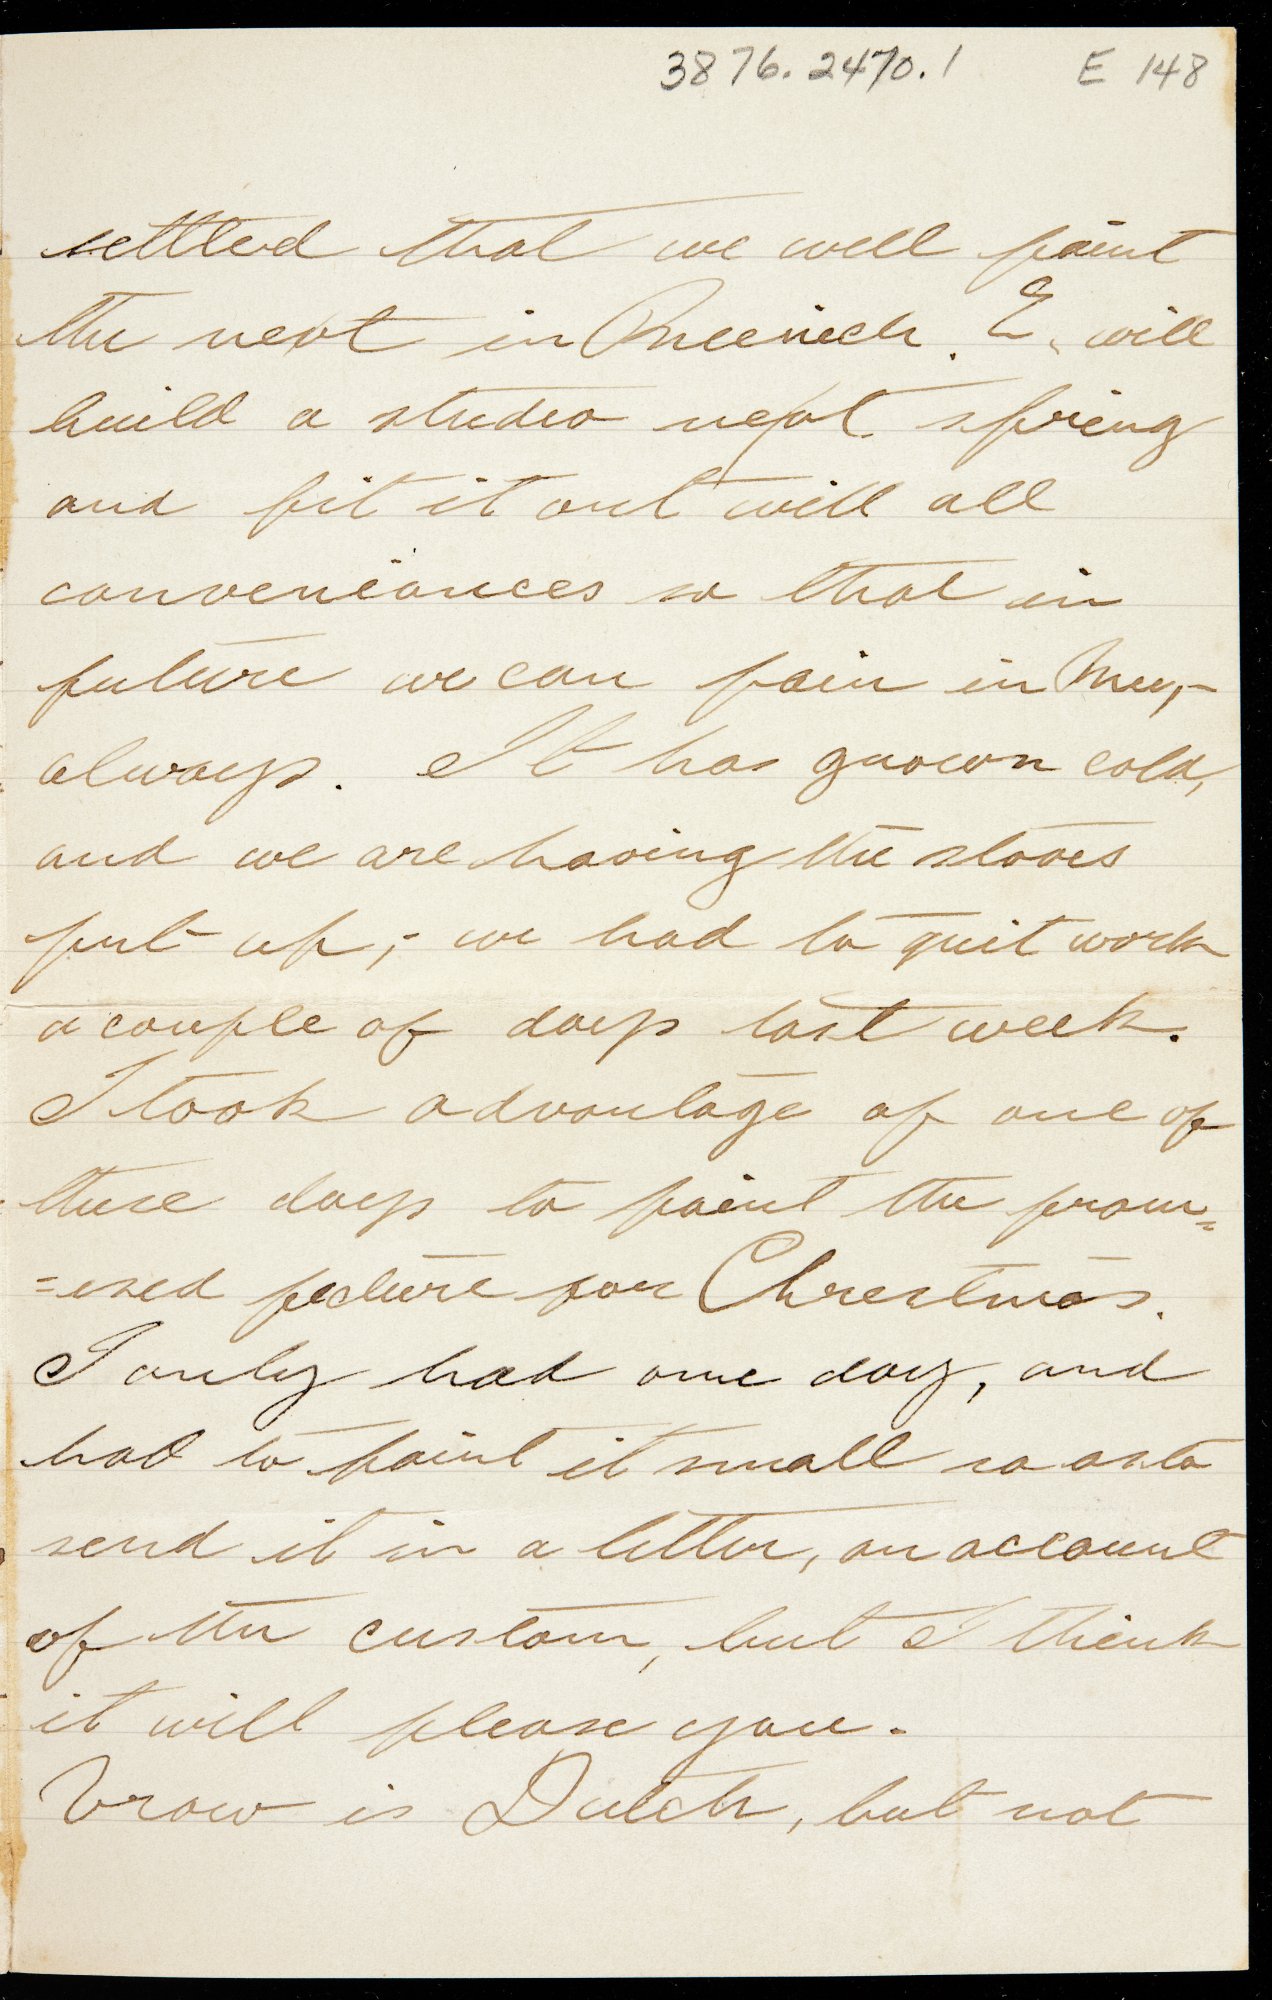 3876.2470.1 E 148
settled that we will paint
the next in Munich. E. will
build a studio next spring
and fit it out will all
conveniances so that in
future we can pain in Mu,-
always. It has grown cold,
and we are having the stoves
put up,- we had to quit work
a couple of days last week.
I took advantage of one of
these days to paint the prom=
=ised picture for Christmas.
I only had one day, and
had to paint it small so as to
send it in a letter, on account
of the custom, but I think
it will please you.
Vrow is Dutch, but not